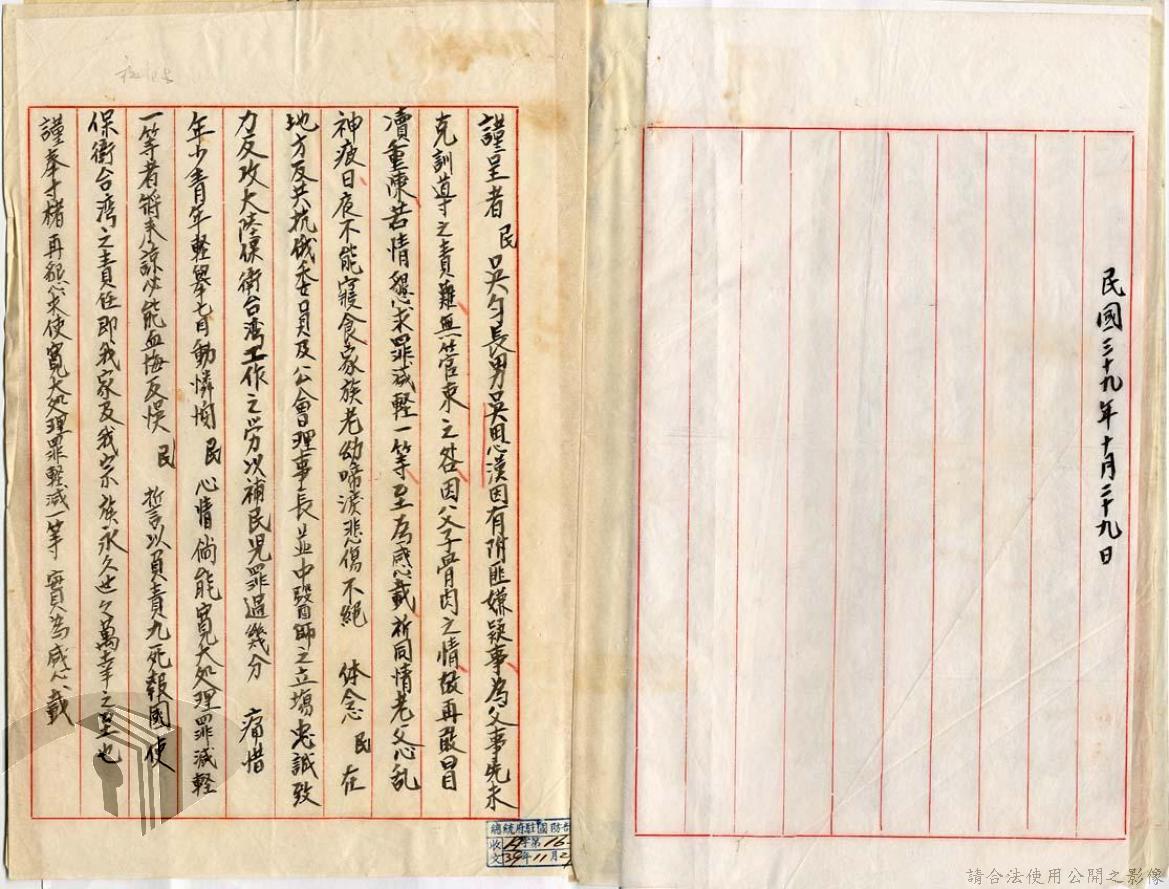 謹呈者 民 吳匀長男吳思漢因有附匪嫌疑事為父事先未
克訓導之責難無管束之咎因父子骨肉之情故再敢冒
瀆重陳苦情懇求罪減輕一等至為感戴祈同情老父心乱
神疲日夜不能寢食家族老幼啼淚悲傷不絕 体念 民 在
地方反共抗俄委員及公會理事長並中醫師之立場忠誠致
力反攻大陸保衛台湾工作之労以補民児罪過幾分 痛惜
年少青年軽舉妄動憐恤 民 心情倘能寬大処理罪減軽
一等者將來諒必能血悔反悞 民 誓以負責九死報國使
保衛台湾之責任即我家及我宗族永久世々萬幸之至也
謹奉寸楮再懇求使寬大処理罪軽減一等 實為感戴
民國三十九年十月二十九日
總統府駐國防
收文 字第16
39年11月2
請合法使用公開之影像